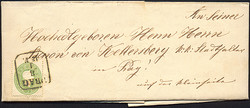 An Seine
Hochwohlgeboren Herrn Herrn
von Kellersberg k.k. Statthalter
in Prag
auf der Kleinseite
PRAG